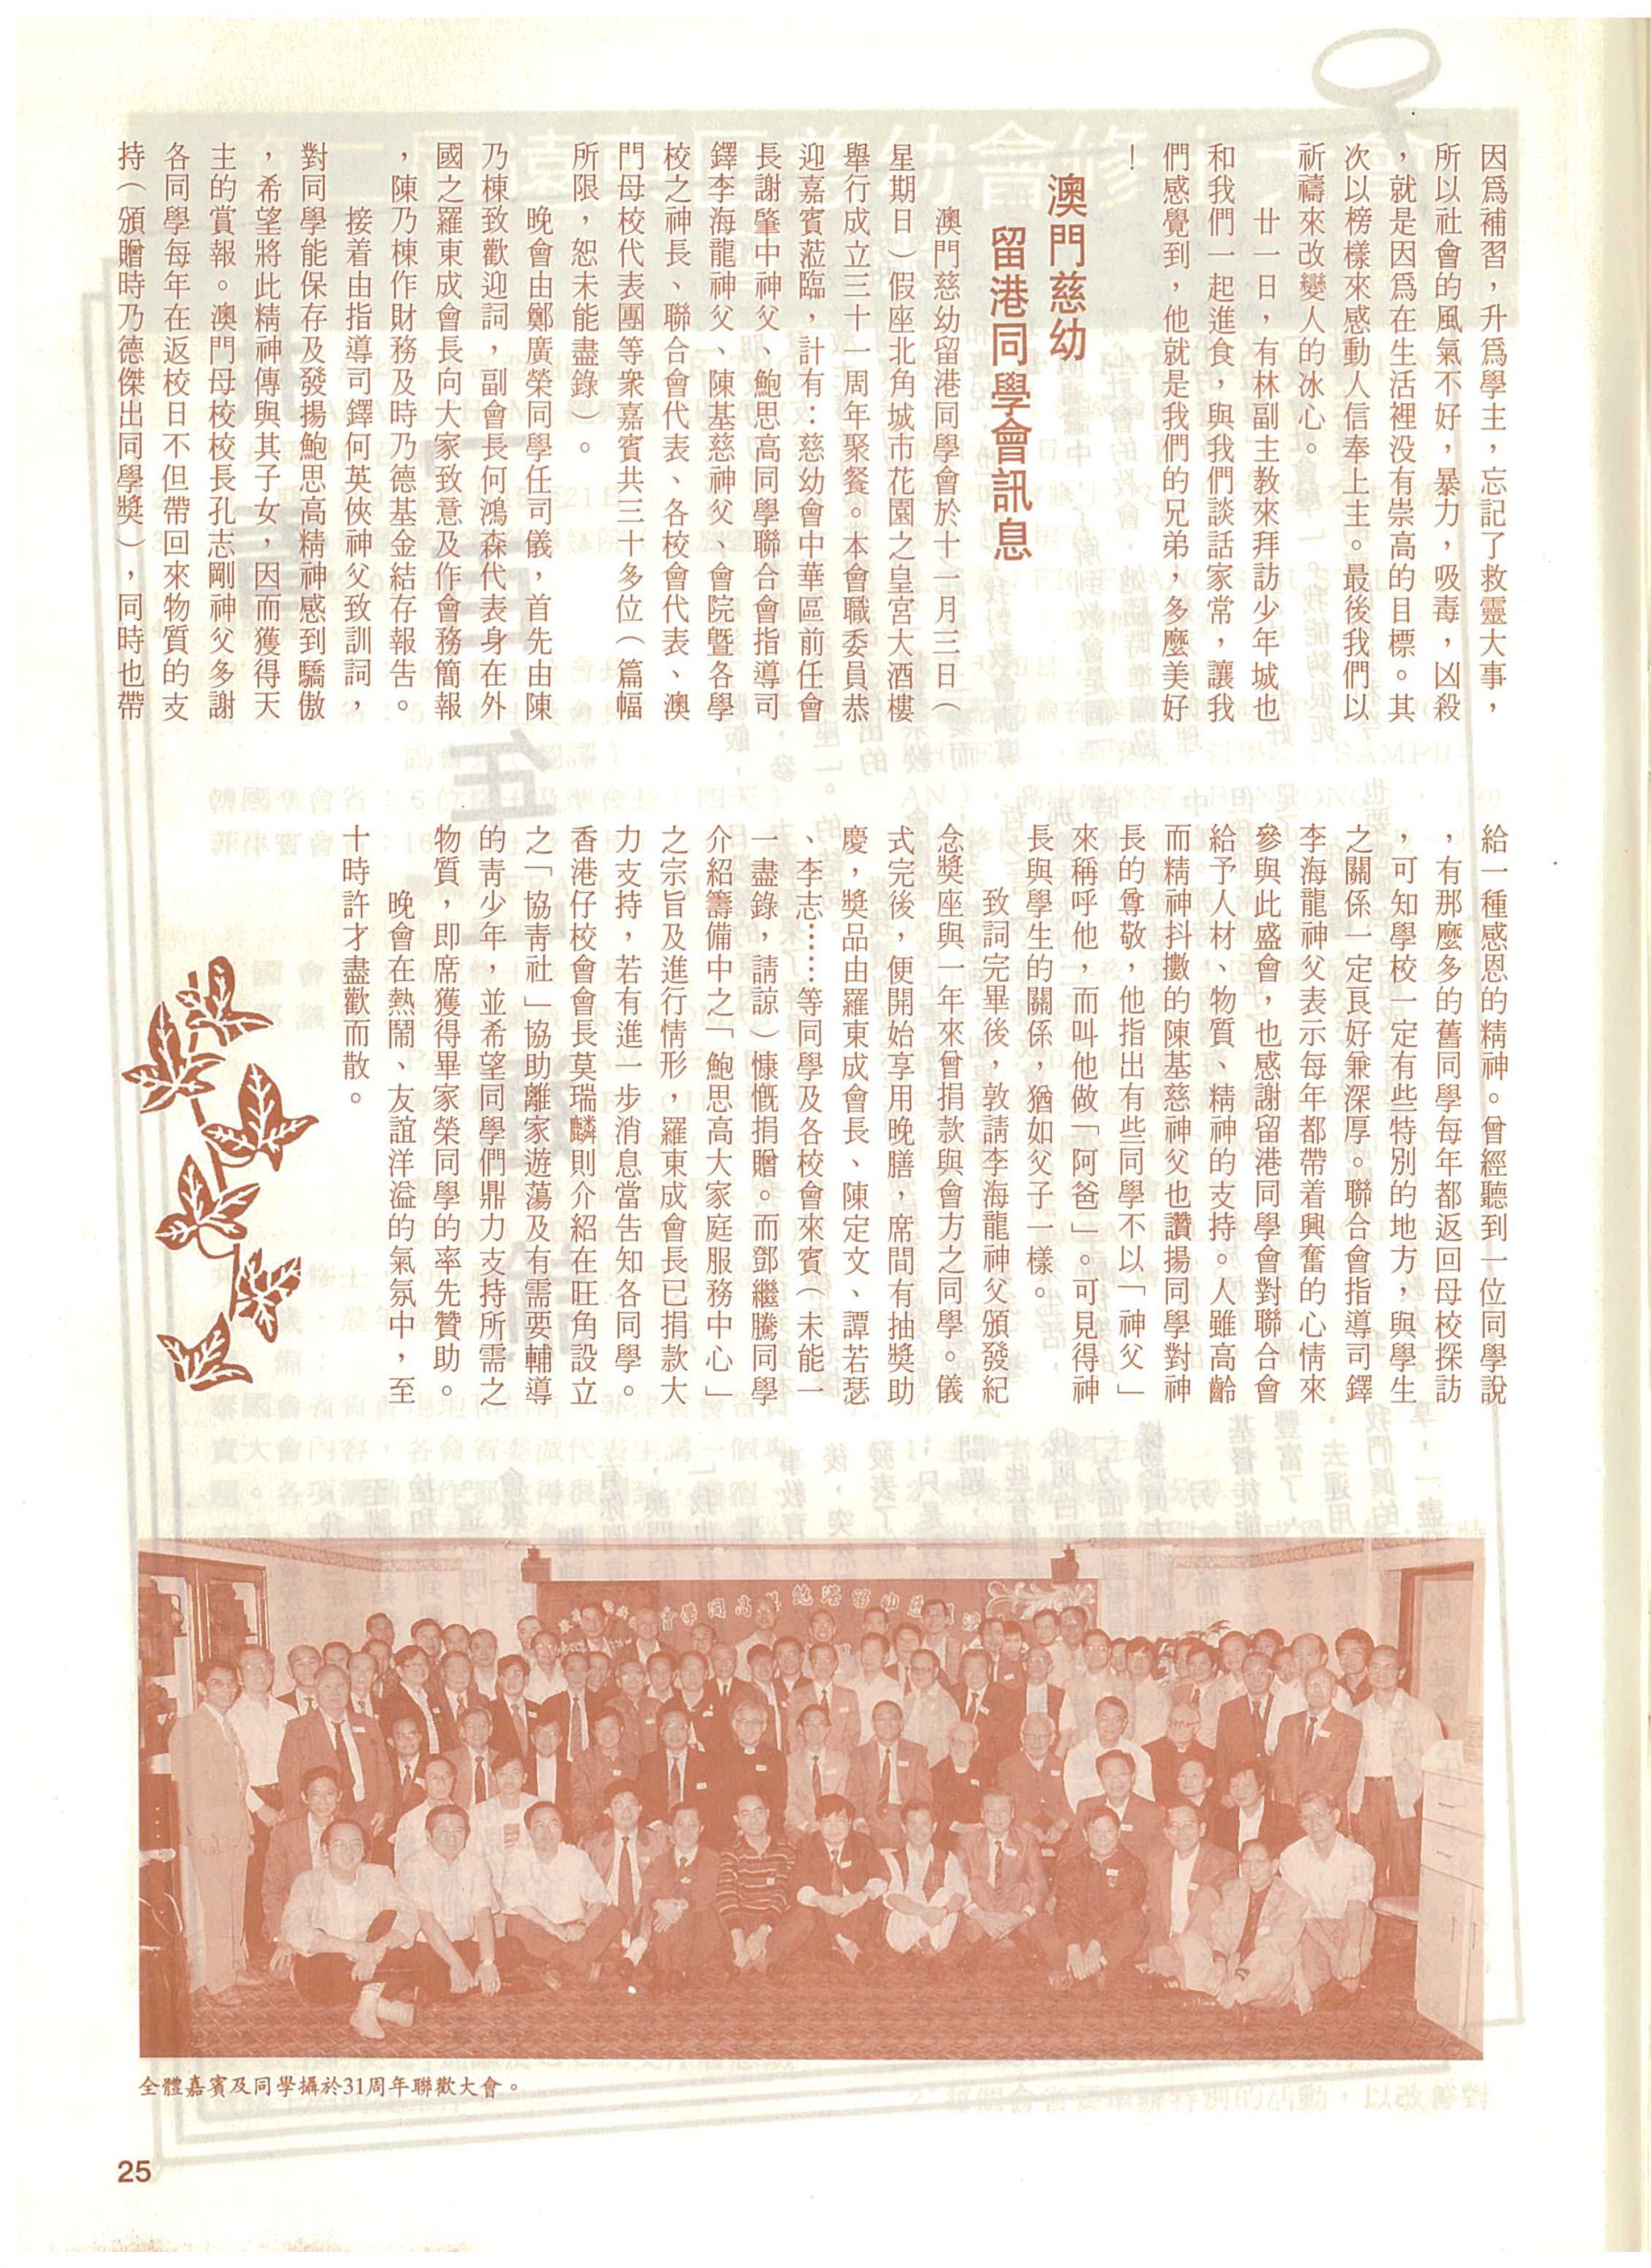 因爲補習，升爲學主，忘記了救靈大事，
所以社會的風氣不好，暴力，吸毒，凶殺
，就是因爲在生活裡没有崇高的目標。其
次以榜樣來感動人信奉上主。最後我們以
祈禱來改變人的冰心。
廿一日，有林副主教來拜訪少年城也
和我們一起進食，與我們談話家常，讓我
們感覺到，他就是我們的兄弟，多麼美好
！
澳門慈幼
留港同學會訊息
澳門慈幼留港同學會於十一月三日（
星期日）假座北角城市花園之皇宮大酒樓
舉行成立三十一周年聚餐。本會職委員恭
迎嘉賓蒞臨，計有：慈幼會中華區前任會
長謝肇中神父、鮑思高同學聯合會指導司
鐸李海龍神父、陳基慈神父、會院暨各學
校之神長、聯合會代表、各校會代表、澳
門母校代表團等衆嘉賓共三十多位（篇幅
所限，恕未能盡錄）。
晚會由鄭廣榮同學任司儀，首先由陳
乃棟致歡迎詞，副會長何鴻森代表身在外
國之羅東成會長向大家致意及作會務簡報
，陳乃棟作財務及時乃德基金結存報告。
接着由指導司鐸何英俠神父致訓詞，
對同學能保存及發揚鮑思高精神感到驕傲
，希望將此精神傳與其子女，因而獲得天
主的賞報。澳門母校校長孔志剛神父多謝
各同學每年在返校日不但帶回來物質的支
持（頒贈時乃德傑出同學獎），同時也帶
給一種感恩的精神。曾經聽到一位同學說
，有那麼多的舊同學每年都返回母校探訪
，可知學校一定有些特別的地方，與學生
之關係一定良好兼深厚。聯合會指導司鐸
李海龍神父表示每年都帶着興奮的心情來
參與此盛會，也感謝留港同學會對聯合會
給予人材、物質、精神的支持。人雖高齡
而精神抖擻的陳基慈神父也讚揚同學對神
長的尊敬，他指出有些同學不以「神父」
來稱呼他，而叫他做「阿爸」。可見得神
長與學生的關係，猶如父子一樣。
致詞完畢後，敦請李海龍神父頒發紀
念獎座與一年來曾捐款與會方之同學。儀
式完後，便開始享用晚膳，席間有抽獎助
慶，獎品由羅東成會長、陳定文、譚若瑟
、李志……等同學及各校會來賓（未能一
一盡錄，請諒）慷慨捐贈。而鄧繼騰同學
介紹籌備中之「鮑思高大家庭服務中心」
之宗旨及進行情形，羅東成會長已捐款大
力支持，若有進一步消息當告知各同學。
香港仔校會會長莫瑞麟則介紹在旺角設立
之「協青社」協助離家遊蕩及有需要輔導
的靑少年，並希望同學們鼎力支持所需之
物質，即席獲得畢家榮同學的率先贊助。
晚會在熱鬧、友誼洋溢的氣氛中，至
十時許才盡歡而散。
全體嘉賓及同學攝於31周年聯歡大會。
25